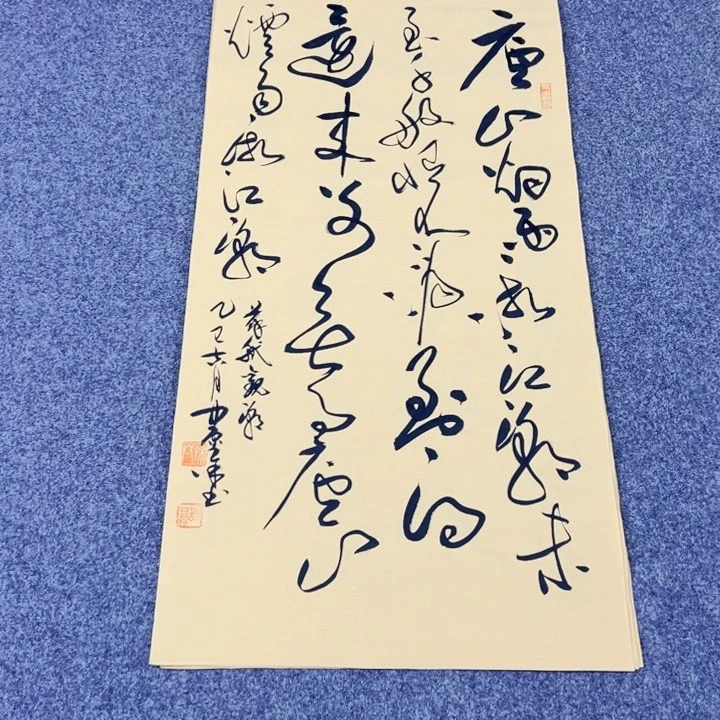 廬山烟雨浙江潮未
到千般恨不消到得
還来别無事廬山
煙雨浙江潮
蘇軾觀潮
乙巳六月